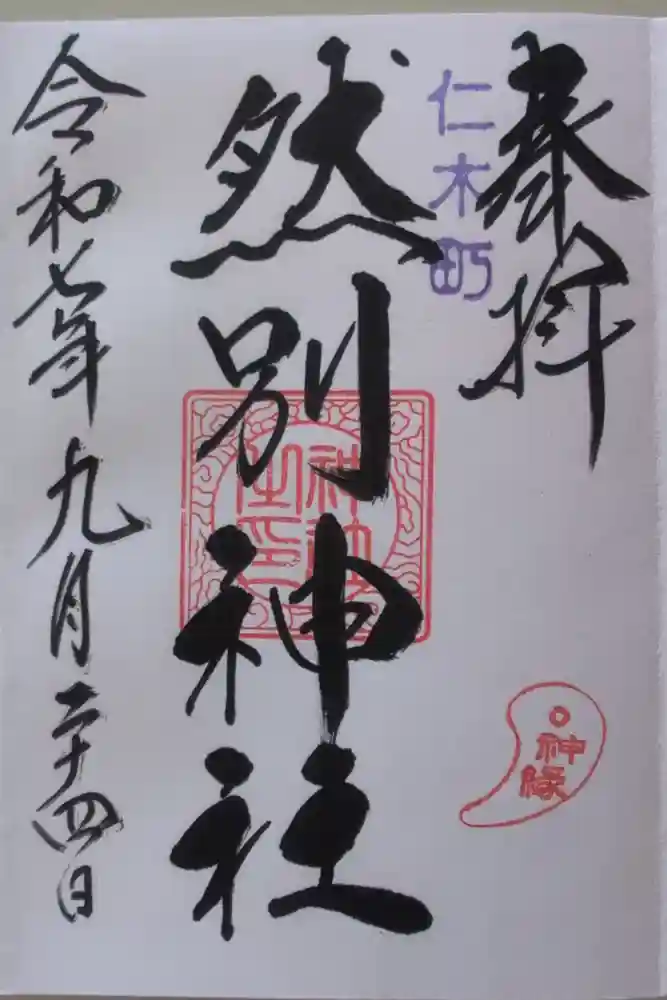 奉拝
仁木町
然別神社
神社
之印
神縁
令和七年九月二十四日